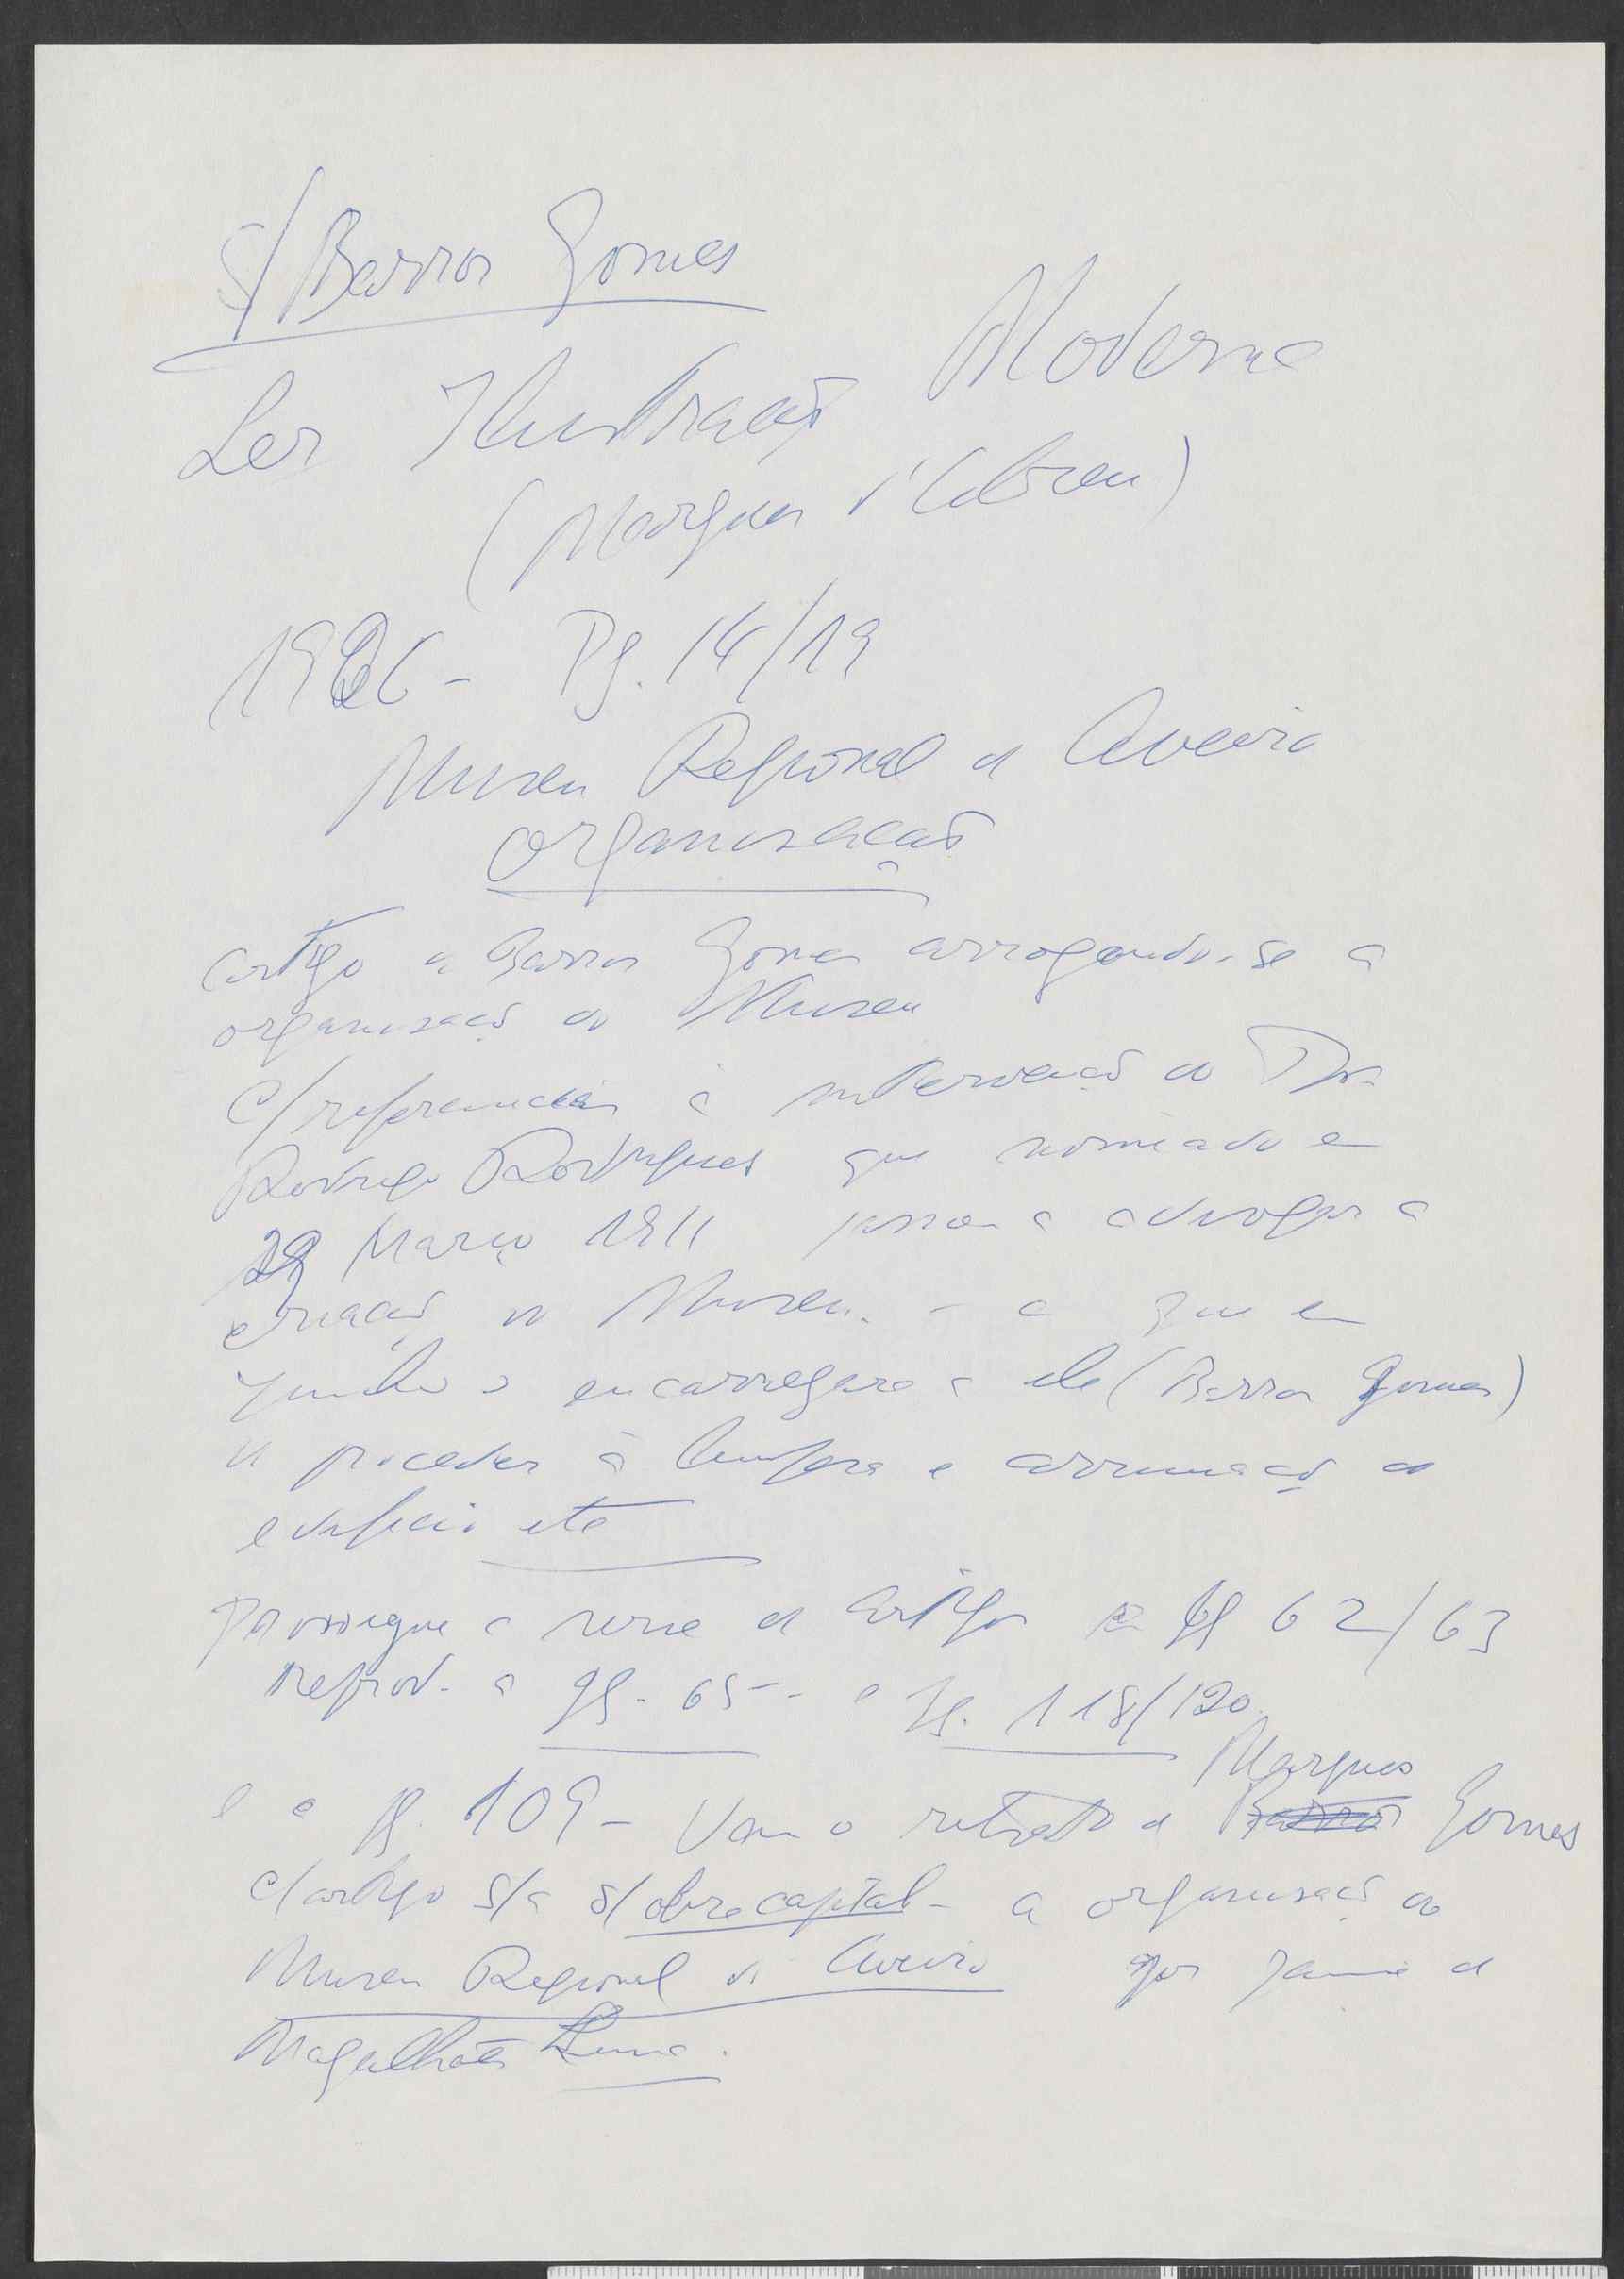 s/ Barros Gomes
Ler Ilustração Moderna
(Marques d'Abreu)
1926 - Pg. 14/19
Museu Regional de Aveiro
organisação
artigo de Barros Gomes arrogando-se a
organisação do Museu
c/ referencias á intervenção do Dr.
Rodrigo Rodrigues que nomeado em
29 Março 1911 passou a advogar a
criação do Museu. - e que em
Junho o encarregara a ele (Barros Gomes)
de proceder á limpesa e arrumação do
edificio etc
Prossegue a serie de artigos a pg 62/63
Reprod. a pg. 65 - e pg. 118/120
e a pg. 109 - Vem o retrato de Marques Gomes
c/ artigo s/a s/ obra capital - a organisação do
Museu Regional de Aveiro por Jaime de
Magalhães Lima.